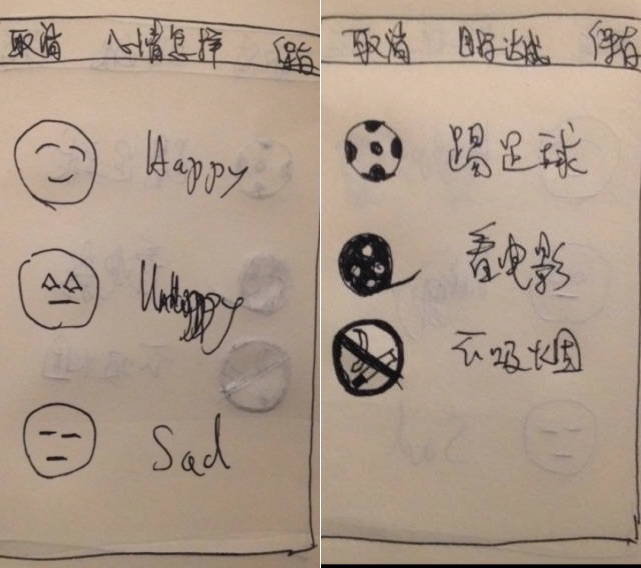 取消 心情怎样 保存
Happy
Unhappy
Sad
取消 目标达成 保存
踢足球
看电影
不吸烟